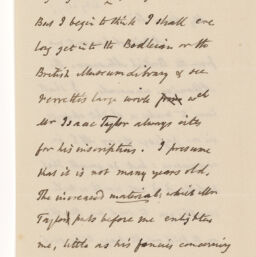 But I begin to think I shall ere
long get into the Bodleian or the
British Museum library & see
large work wch
Mr Isaac Taylor always cites
for his inscriptions. I presume
that it is not many years old.
The increased materials, which Mr
Taylor puts before me enlighten
me, little as his fancies concerning